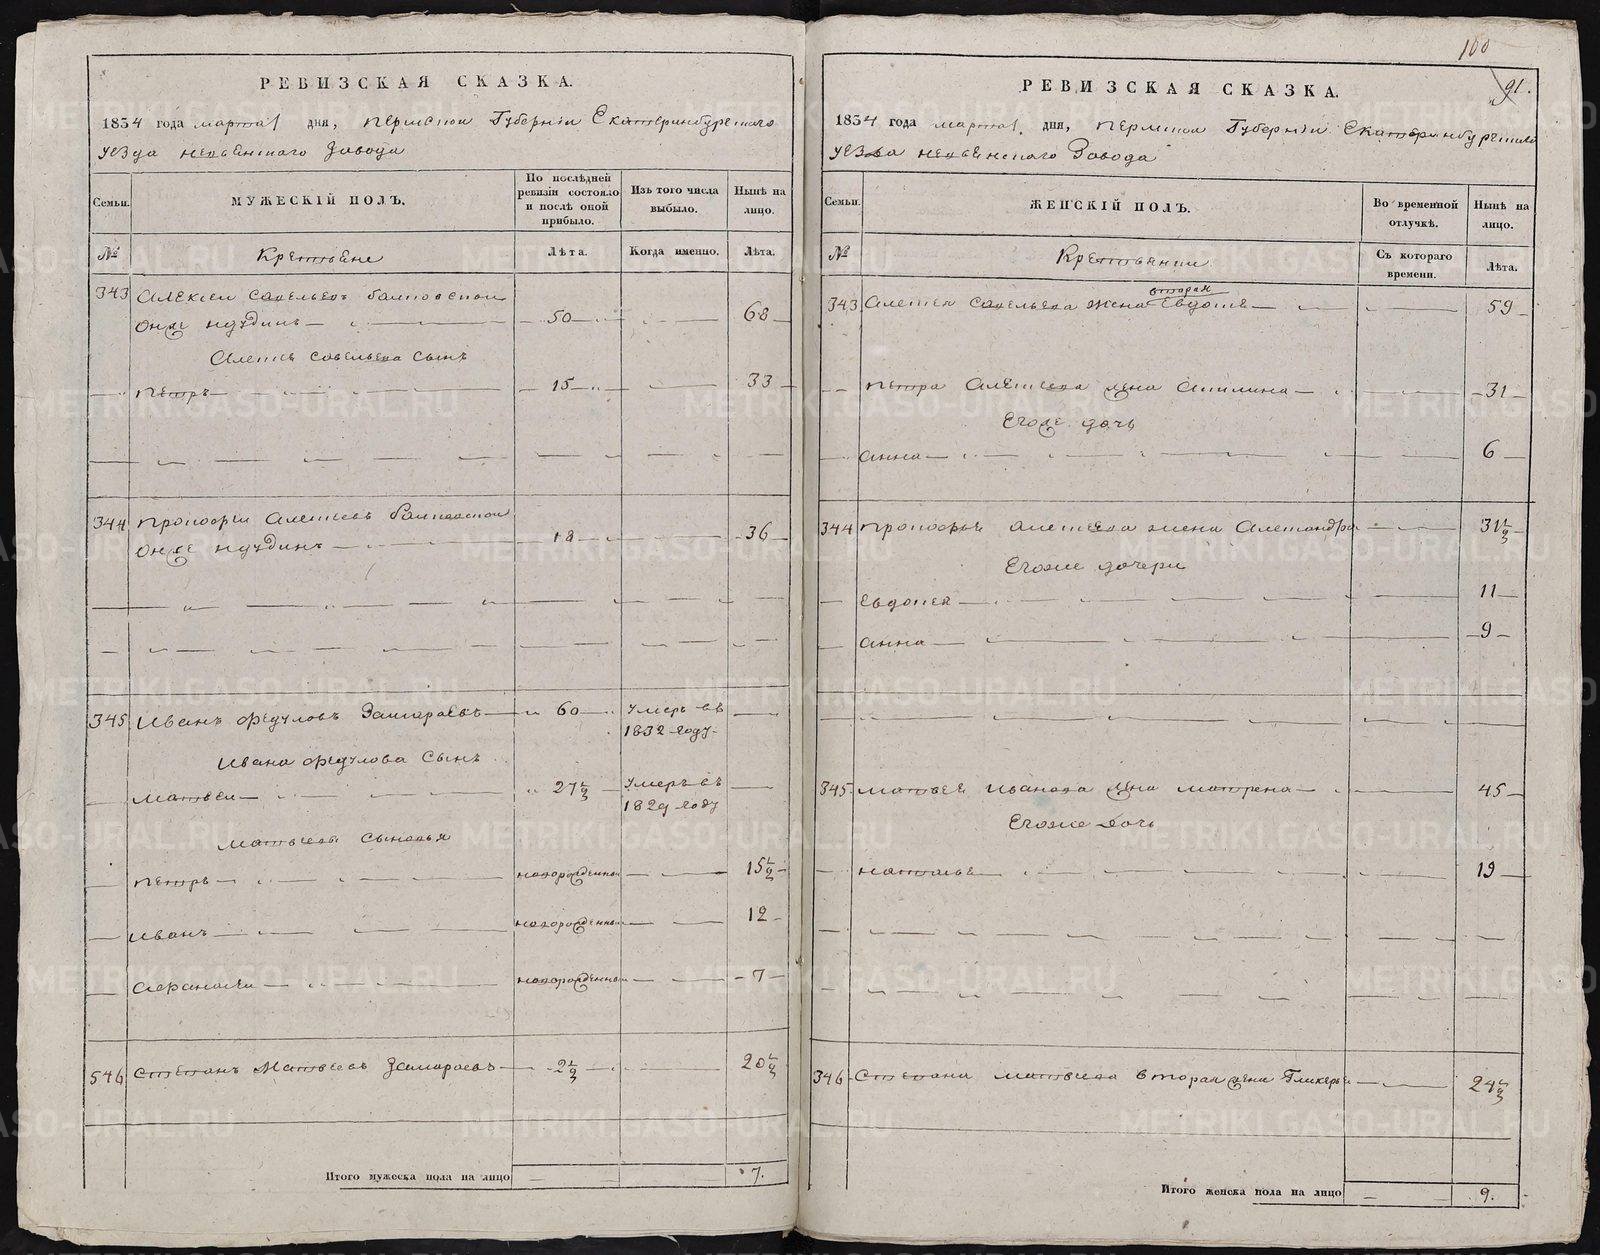 РЕВИЗСКАЯ СКАЗКА.
1834 года марта 1 дня, Пермской Губернїи Екатеринбургскаго
уезда невьянскаго Завода
Семьи.
МУЖЕСКІЙ ПОЛЪ.
По послѣдней ревизіи состояло и послѣ оной прибыло.
Изъ того числа выбыло.
Нынѣ на лицо.
№
Крестьяне
Лѣта.
Когда именно.
Лѣта.
343 Алексеи Савельевъ
онже 50 68
Алексея Савельева Сынъ
Петръ 15 33
344 Прокофеи Алексеевъ
онже 18 36
345 Иванъ Федуловъ Замараевъ 60 умеръ въ
1832 году
Ивана Федулова Сынъ
Матвеи 27½ умеръ въ
1829 году
Матвея Сыновья
Петръ новорожденнои 15½
Иванъ новорожденнои 12
Афанасеи новорожденнои 7
346 Степанъ Матвеевъ Замараевъ 2½ 20½
Итого мужеска пола на лицо 7.
100
91.
РЕВИЗСКАЯ СКАЗКА.
1834 года марта 1 дня, Пермской Губернїи Екатеринбургскаго
уезда невьянскаго Завода
Семьи.
ЖЕНСКІЙ ПОЛЪ.
Во временной отлучкѣ.
Нынѣ на лицо.
№
Крестьянки
Съ котораго времени.
Лѣта.
вторая
343 Алексея Савельева жена Евдокея 59
Петра Алексеева жена Акилина 31
Егоже дочь
Анна 6
344 Прокофья Алексеева жена Александра 31½
Егоже дочери
Евдокея 11
Анна 9
345 Матвея Иванова жена Матрена 45
Егоже дочь
Наталья 19
346 Степана Матвеева вторая жена Гликерья 24½
Итого женска пола на лицо 9.
METRIKI.GASO-URAL.RU